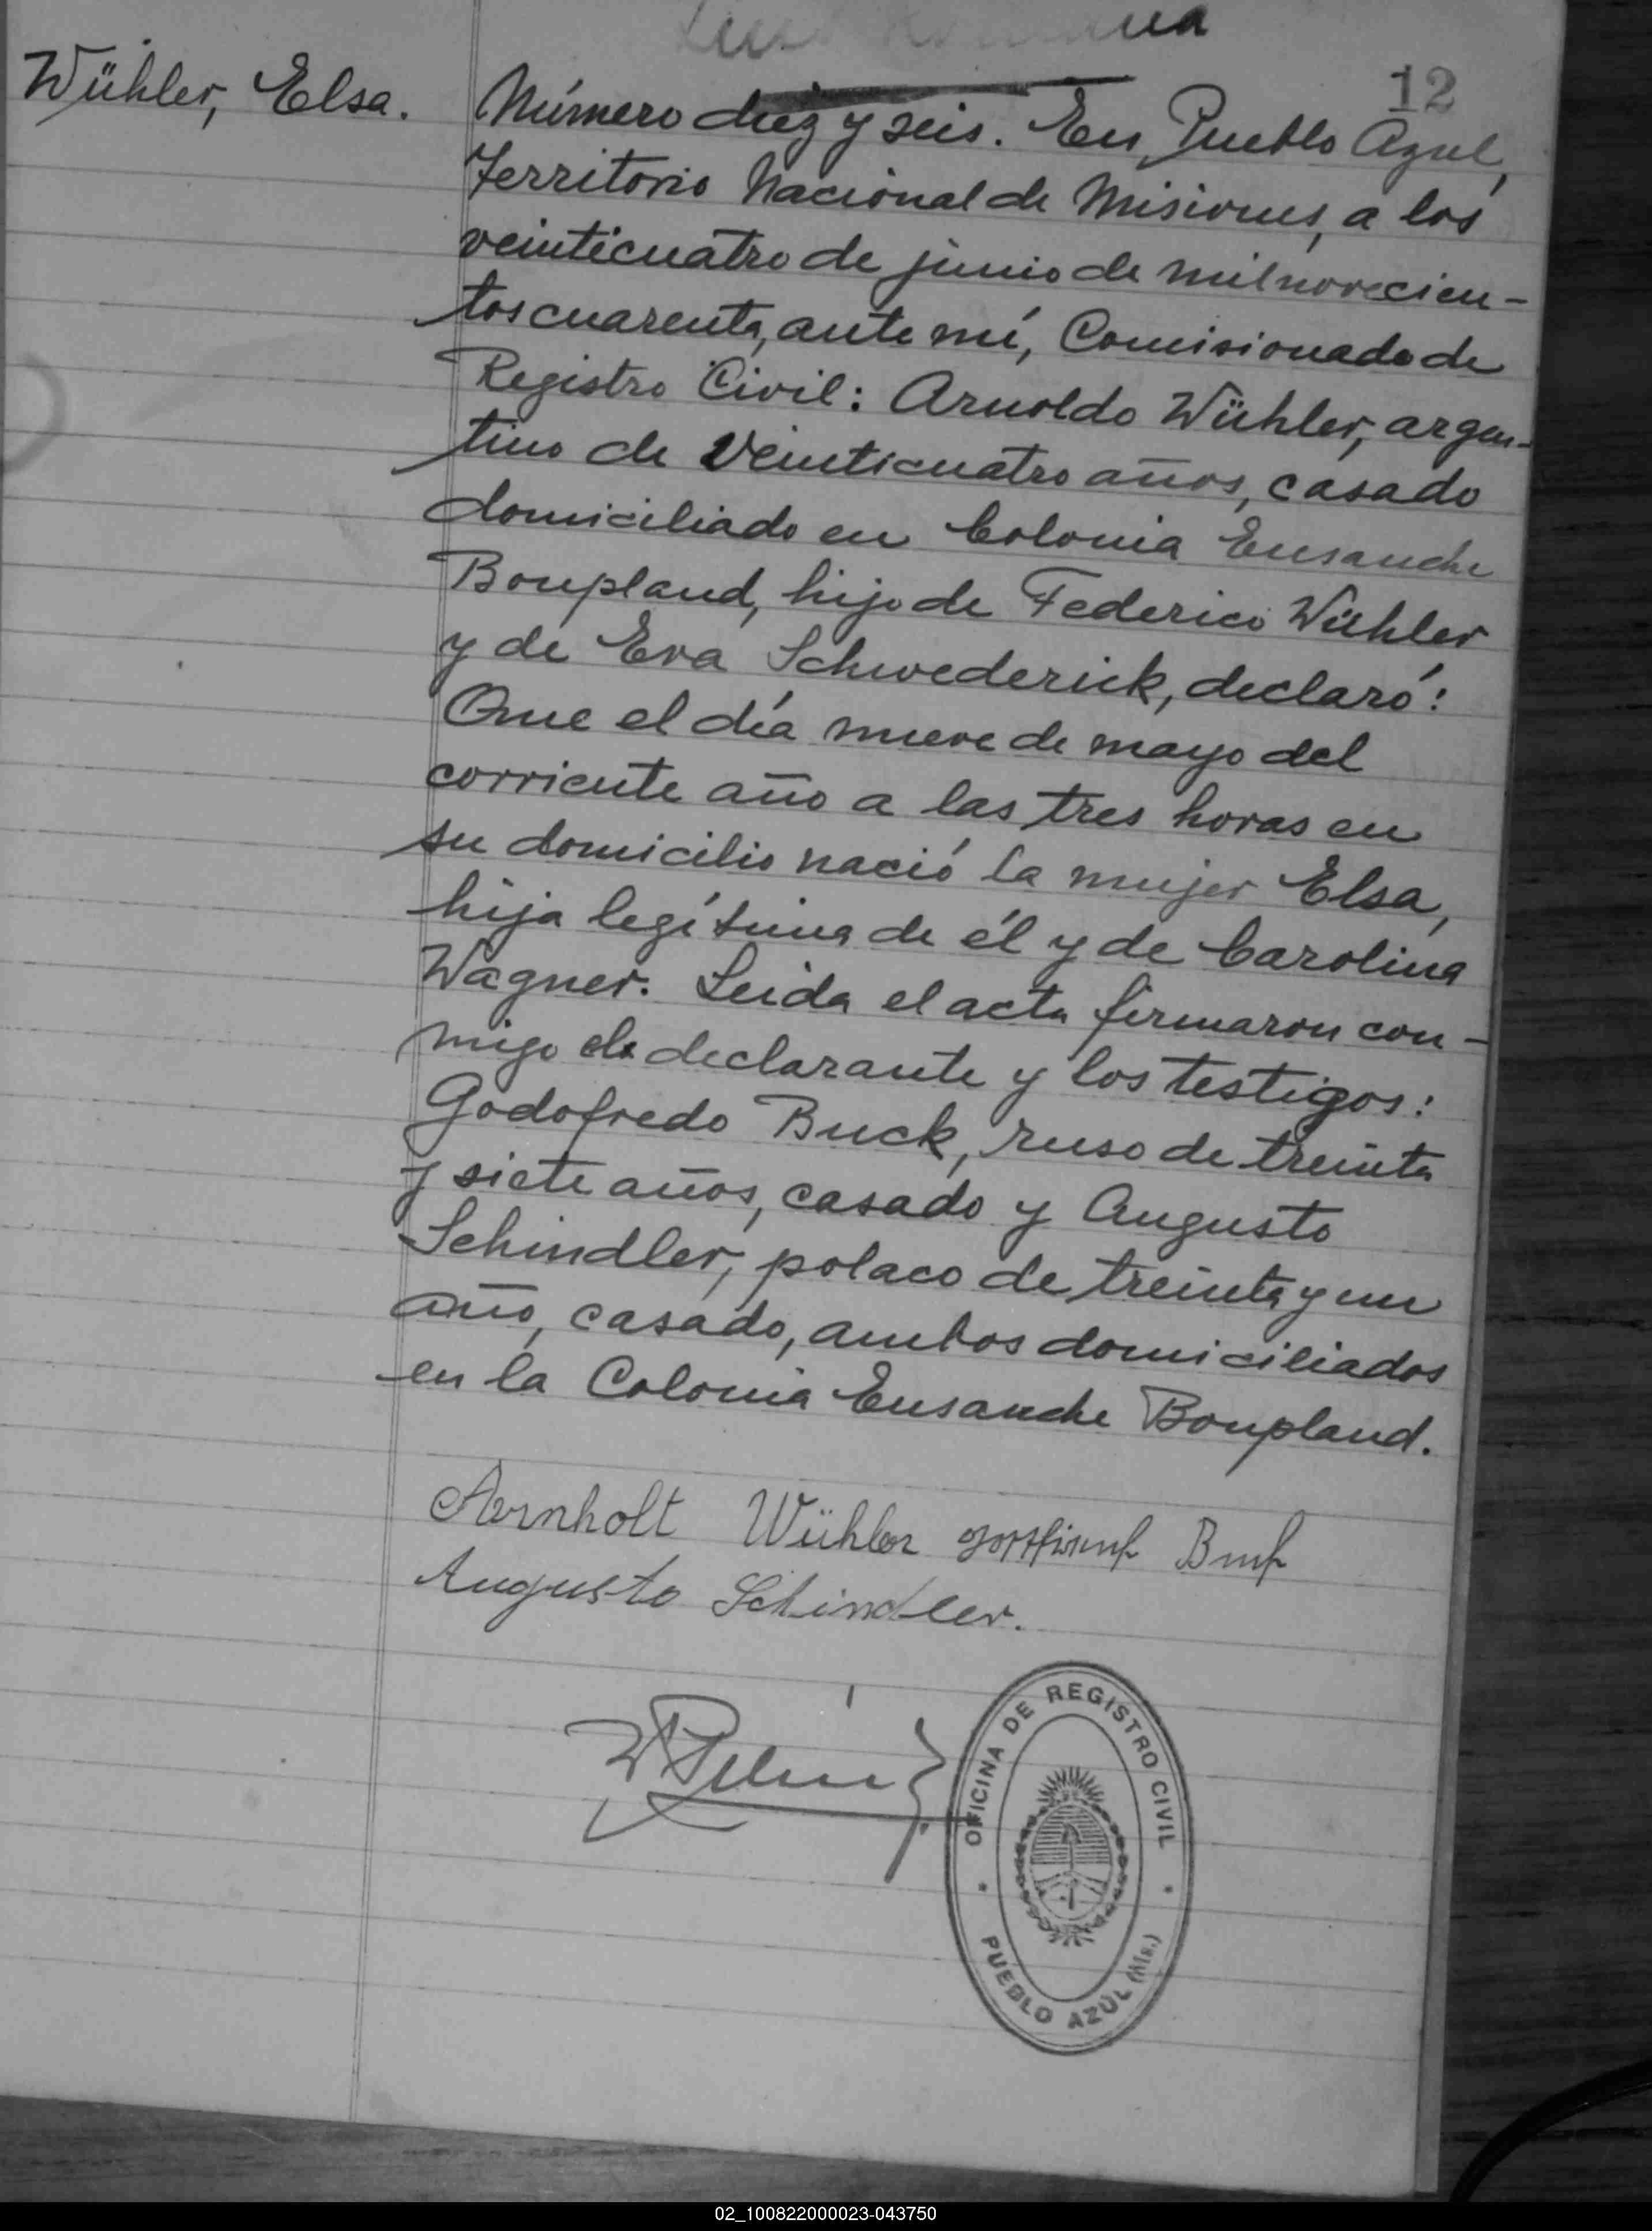 12
Wühler, Elsa.
Número diez y seis. En Pueblo Azul,
Territorio Nacional de Misiones, a los
veinticuatro de junio de mil novecien-
tos cuarenta, ante mí, Comisionado de
Registro Civil: Arnoldo Wühler, argen-
tino de veinticuatro años, casado
domiciliado en Colonia Ensanche
Bonpland, hijo de Federico Wühler
y de Eva Schwederick, declaró:
Que el día nueve de mayo del
corriente año a las tres horas en
su domicilio nació la mujer Elsa,
hija legítima de él y de Carolina
Wagner. Leida el acta firmaron con-
migo el declarante y los testigos:
Godofredo Buck, ruso de treinta
y siete años, casado y Augusto
Schindler, polaco de treinta y un
año, casado, ambos domiciliados
en la Colonia Ensanche Bonpland.
Arnholt Wühler Gottfried Buck
Augusto Schindler.
OFICINA DE REGISTRO CIVIL
* PUEBLO AZUL (Mis.) *
02_100822000023-043750